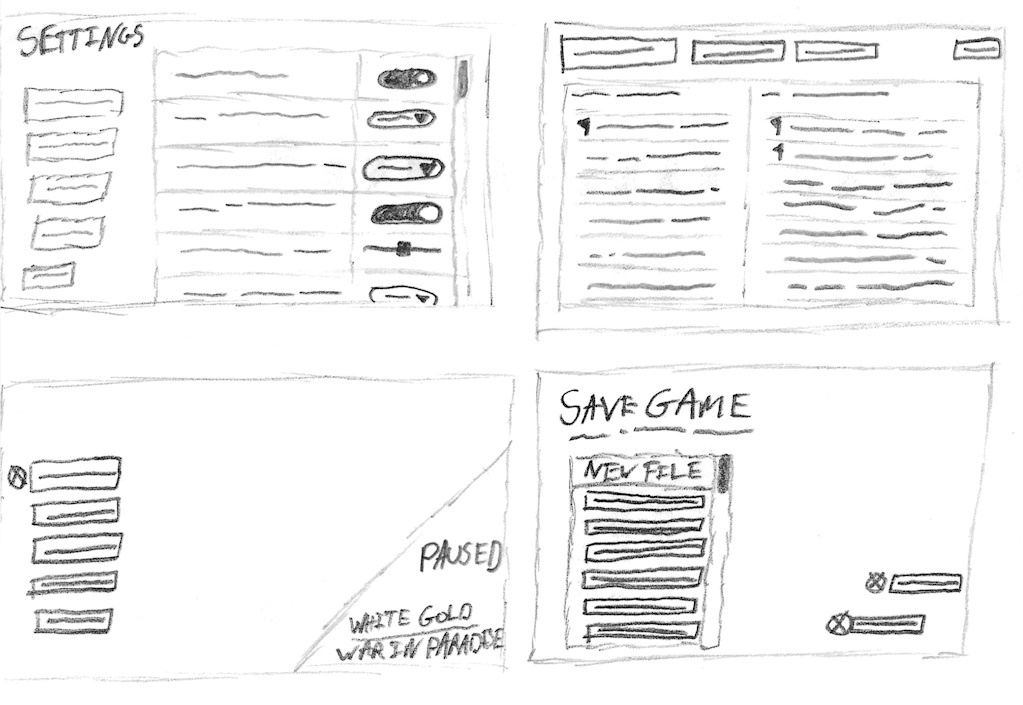 SETTINGS
PAUSED
WHITE GOLD
WAR IN PARADISE
SAVE GAME
NEW FILE